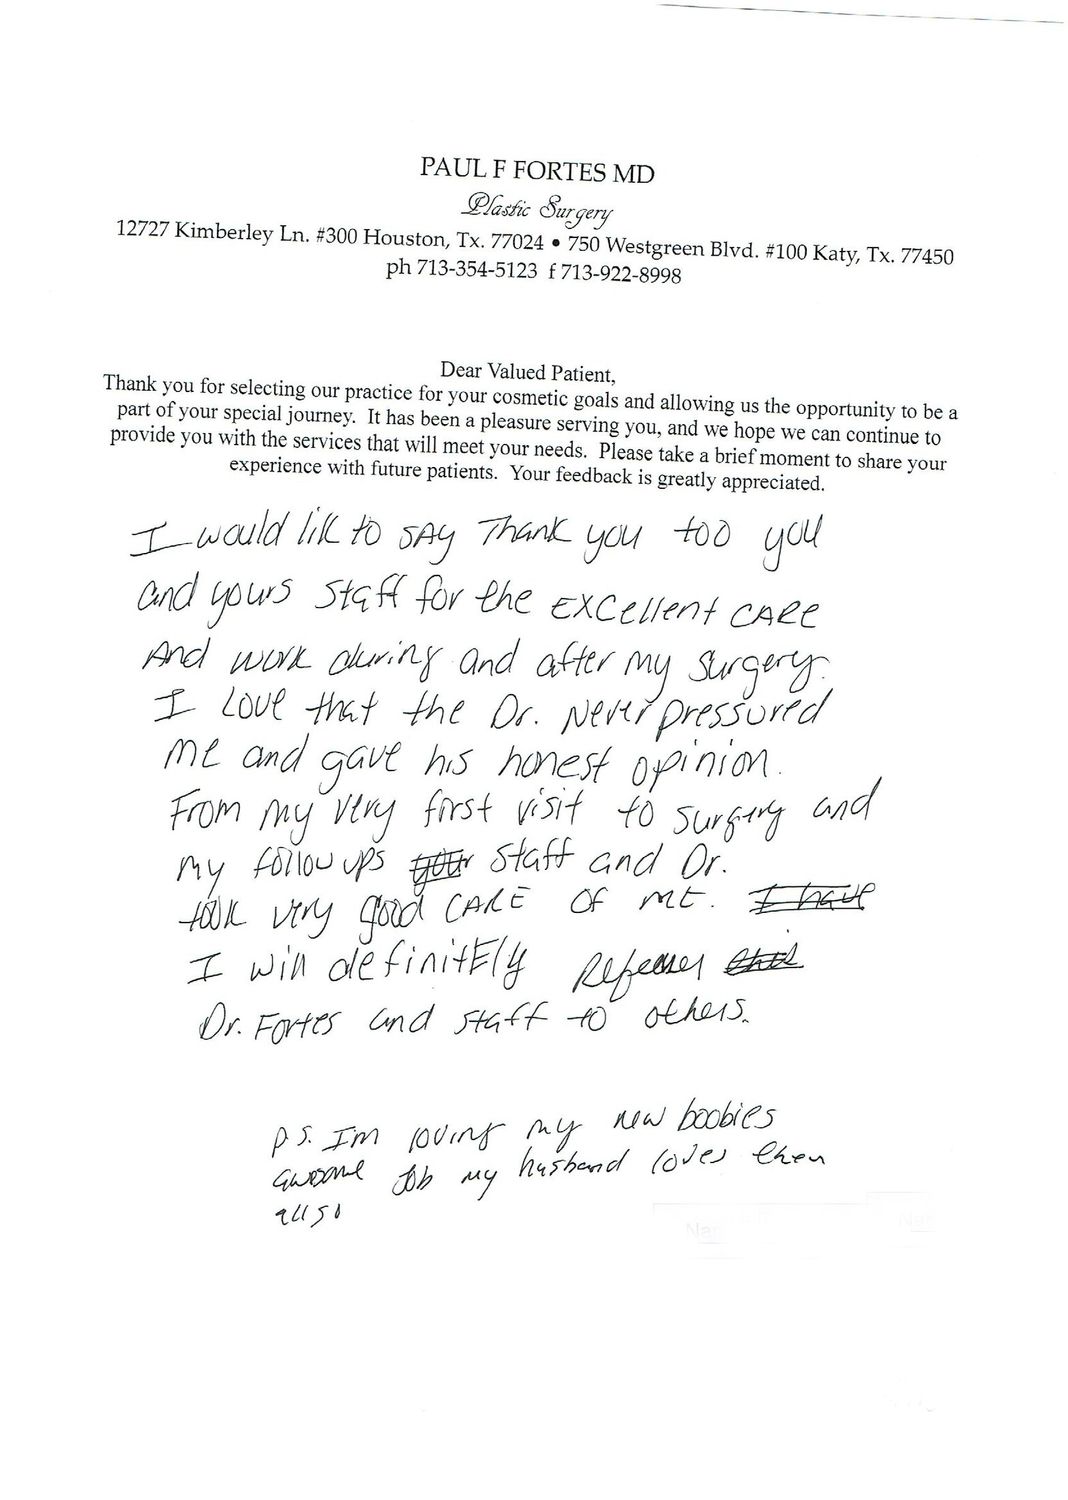 PAUL F FORTES MD
Plastic Surgery
12727 Kimberley Ln. #300 Houston, Tx. 77024 • 750 Westgreen Blvd. #100 Katy, Tx. 77450
ph 713-354-5123 f 713-922-8998
Dear Valued Patient,
Thank you for selecting our practice for your cosmetic goals and allowing us the opportunity to be a
part of your special journey. It has been a pleasure serving you, and we hope we can continue to
provide you with the services that will meet your needs. Please take a brief moment to share your
experience with future patients. Your feedback is greatly appreciated.
I would lik to SAY Thank you too you
and yours staff for the EXCellent CARE
And work during and after my surgery.
I Love that the Dr. Never pressured
Me and gave his honest opinion.
From my very first visit to surgery and
my follow ups your staff and Dr.
took very good CARE OF ME. I have
I will definitEly Refeerer this
Dr. Fortes and staff to others.
p.s. I'm loving my new boobies
awesome Job my husband loves them
allso